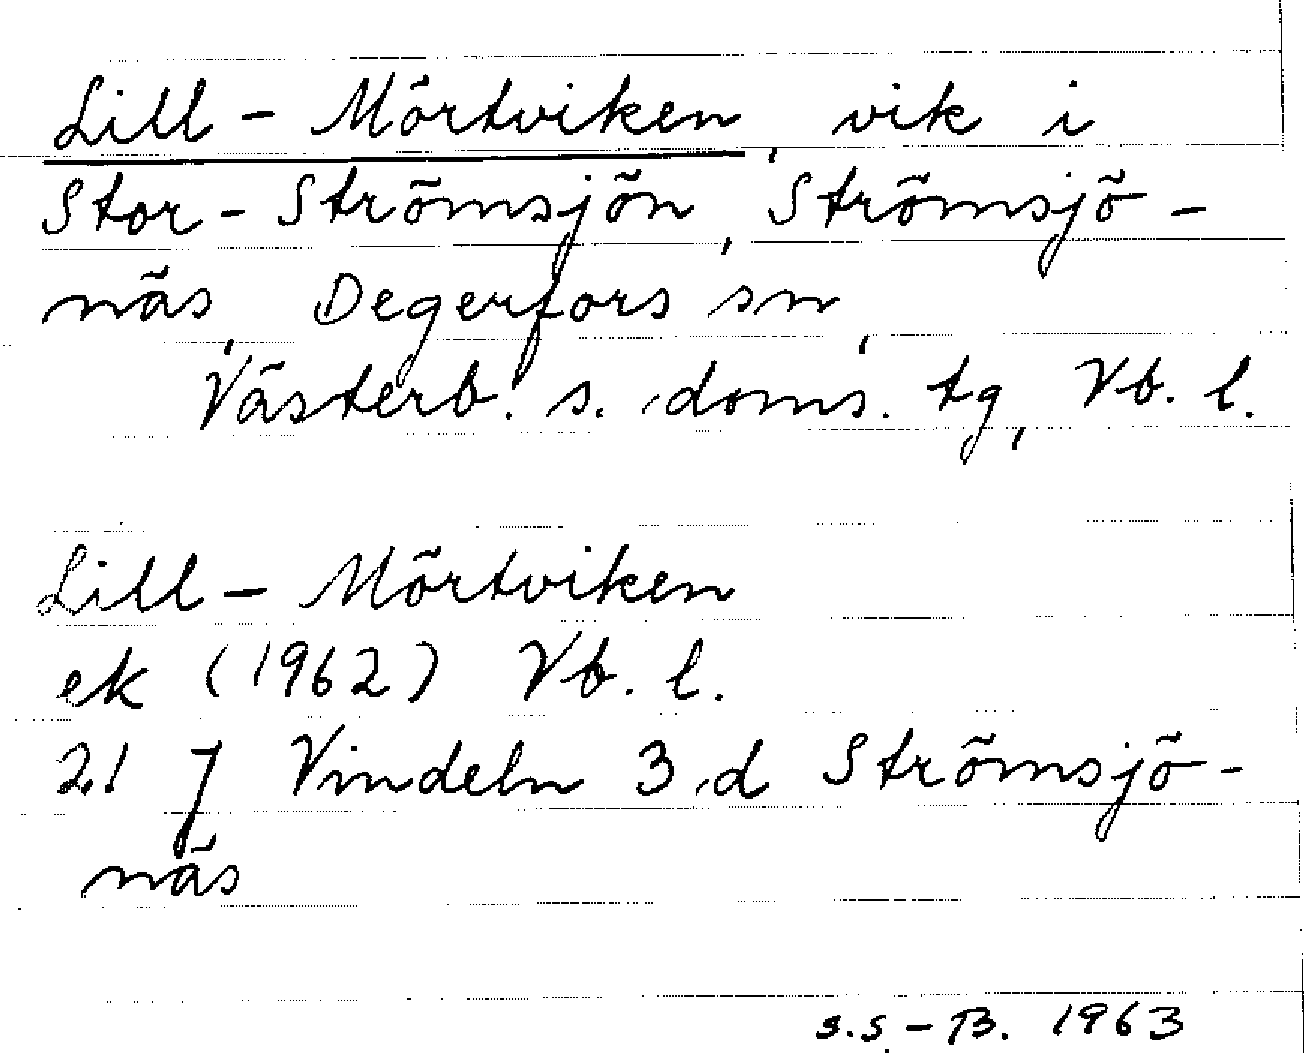 Lill - Mörtviken, vik i
Stor - Strömsjön, Strömsjö -
näs, Degerfors sn,
Västerb. s. doms. tg, Vb. l.
Lill - Mörtviken
ek (1962) Vb. l.
21 J Vindeln 3 d Strömsjö -
näs
s.s. - B. 1963